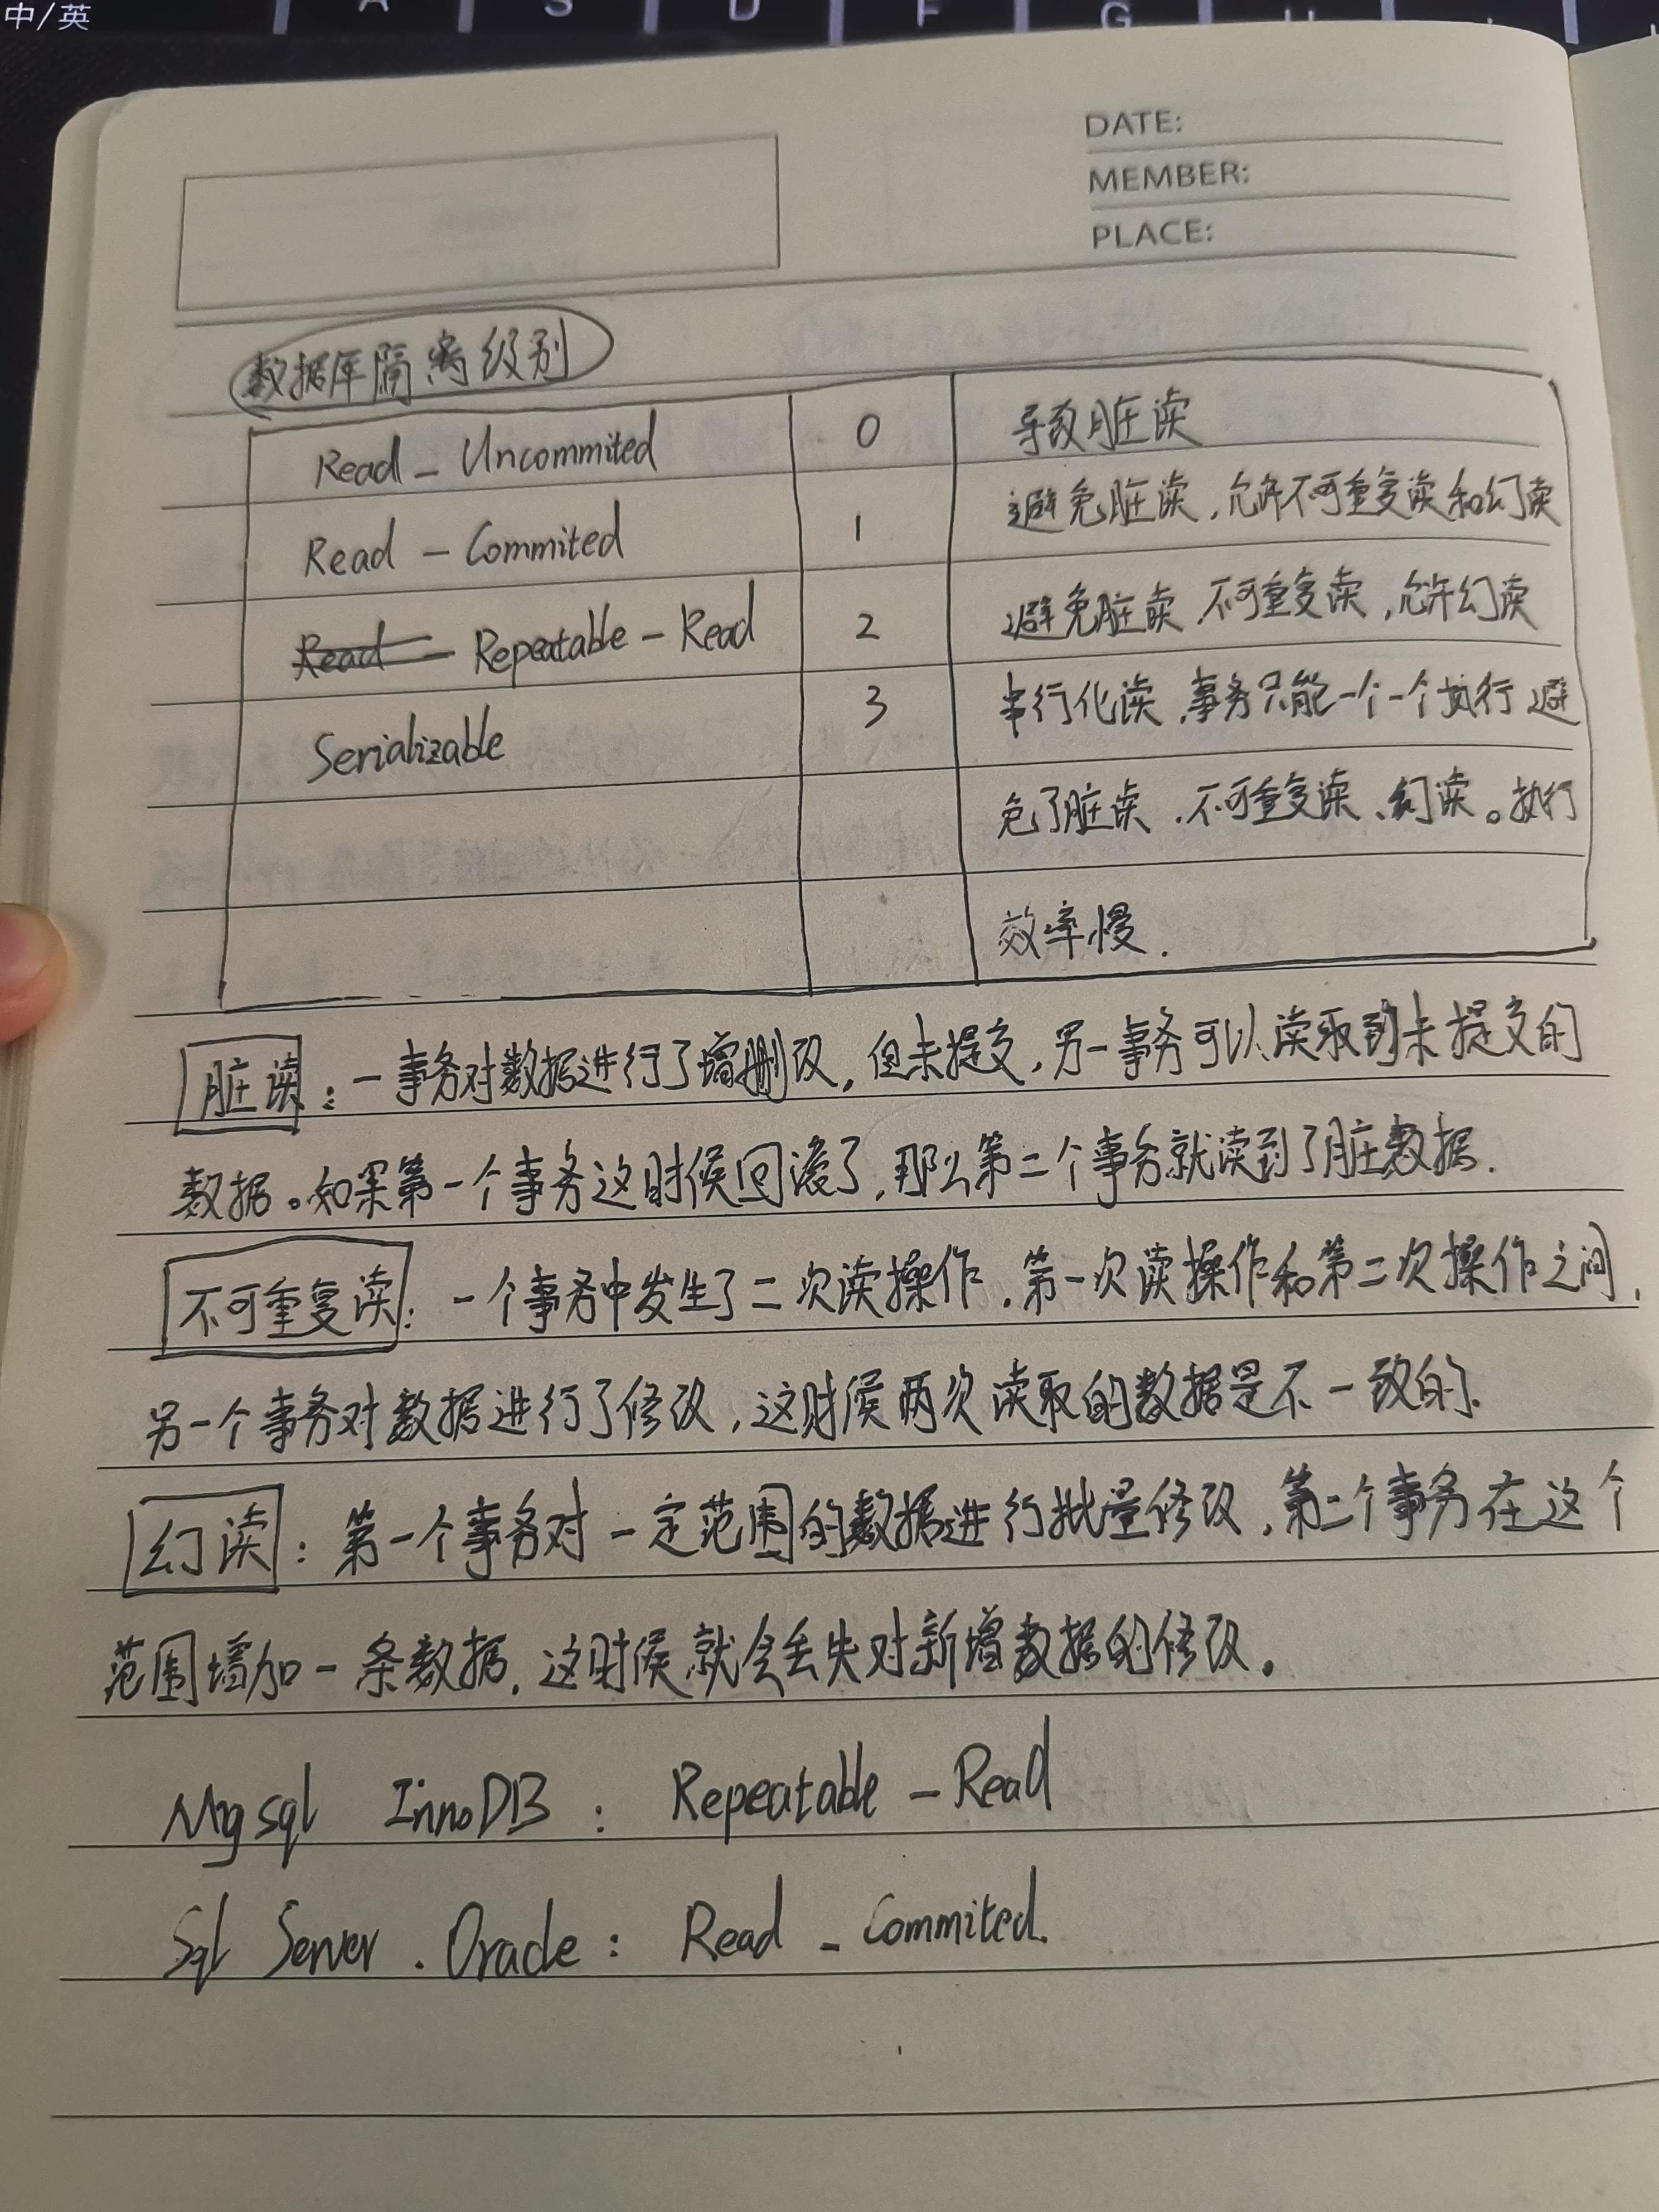 中/英 A S D F G
DATE:
MEMBER:
PLACE:
数据库隔离级别
Read - Uncommited 0 导致脏读
Read - Commited 1 避免脏读,允许不可重复读和幻读
Read - Repeatable - Read 2 避免脏读 不可重复读,允许幻读
Serializable 3 串行化读,事务只能一个一个执行 避
免了脏读、不可重复读、幻读。执行
效率慢.
脏读:一事务对数据进行了增删改,但未提交,另一事务可以读取到未提交的
数据。如果第一个事务这时候回滚了,那么第二个事务就读到了脏数据.
不可重复读:一个事务中发生了二次读操作,第一次读操作和第二次操作之间,
另一个事务对数据进行了修改,这时候两次读取的数据是不一致的.
幻读:第一个事务对一定范围的数据进行批量修改,第二个事务在这个
范围增加一条数据,这时候就会丢失对新增数据的修改。
Mysql InnoDB : Repeatable - Read
Sql Server . Oracle : Read - Commited.